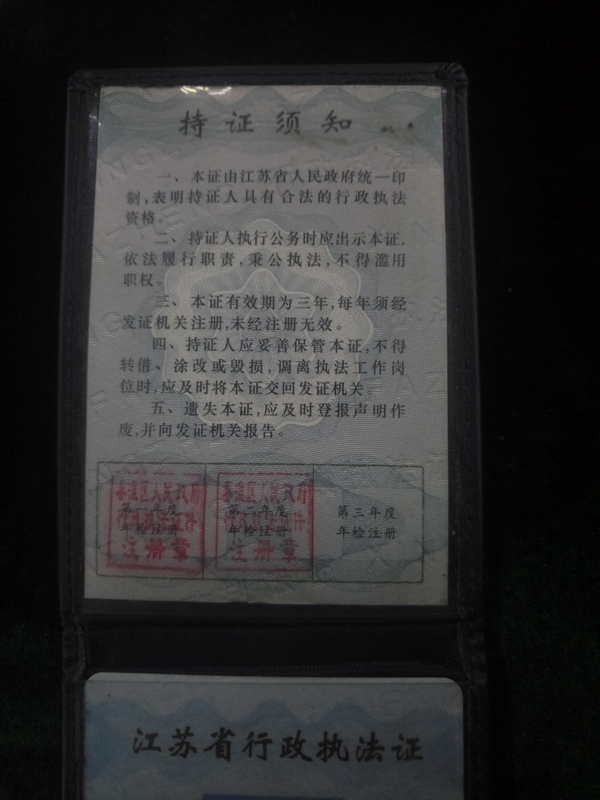 持证须知
一、本证由江苏省人民政府统一印
制,表明持证人具有合法的行政执法
资格。
二、持证人执行公务时应出示本证,
依法履行职责,秉公执法,不得滥用
职权。
三、本证有效期为三年,每年须经
发证机关注册,未经注册无效。
四、持证人应妥善保管本证,不得
转借、涂改或毁损,调离执法工作岗
位时,应及时将本证交回发证机关。
五、遗失本证,应及时登报声明作
废,并向发证机关报告。
秦淮区人民政府
行政执法证件
注册章
第一年度
年检注册
秦淮区人民政府
行政执法证件
注册章
第二年度
年检注册
第三年度
年检注册
江苏省行政执法证